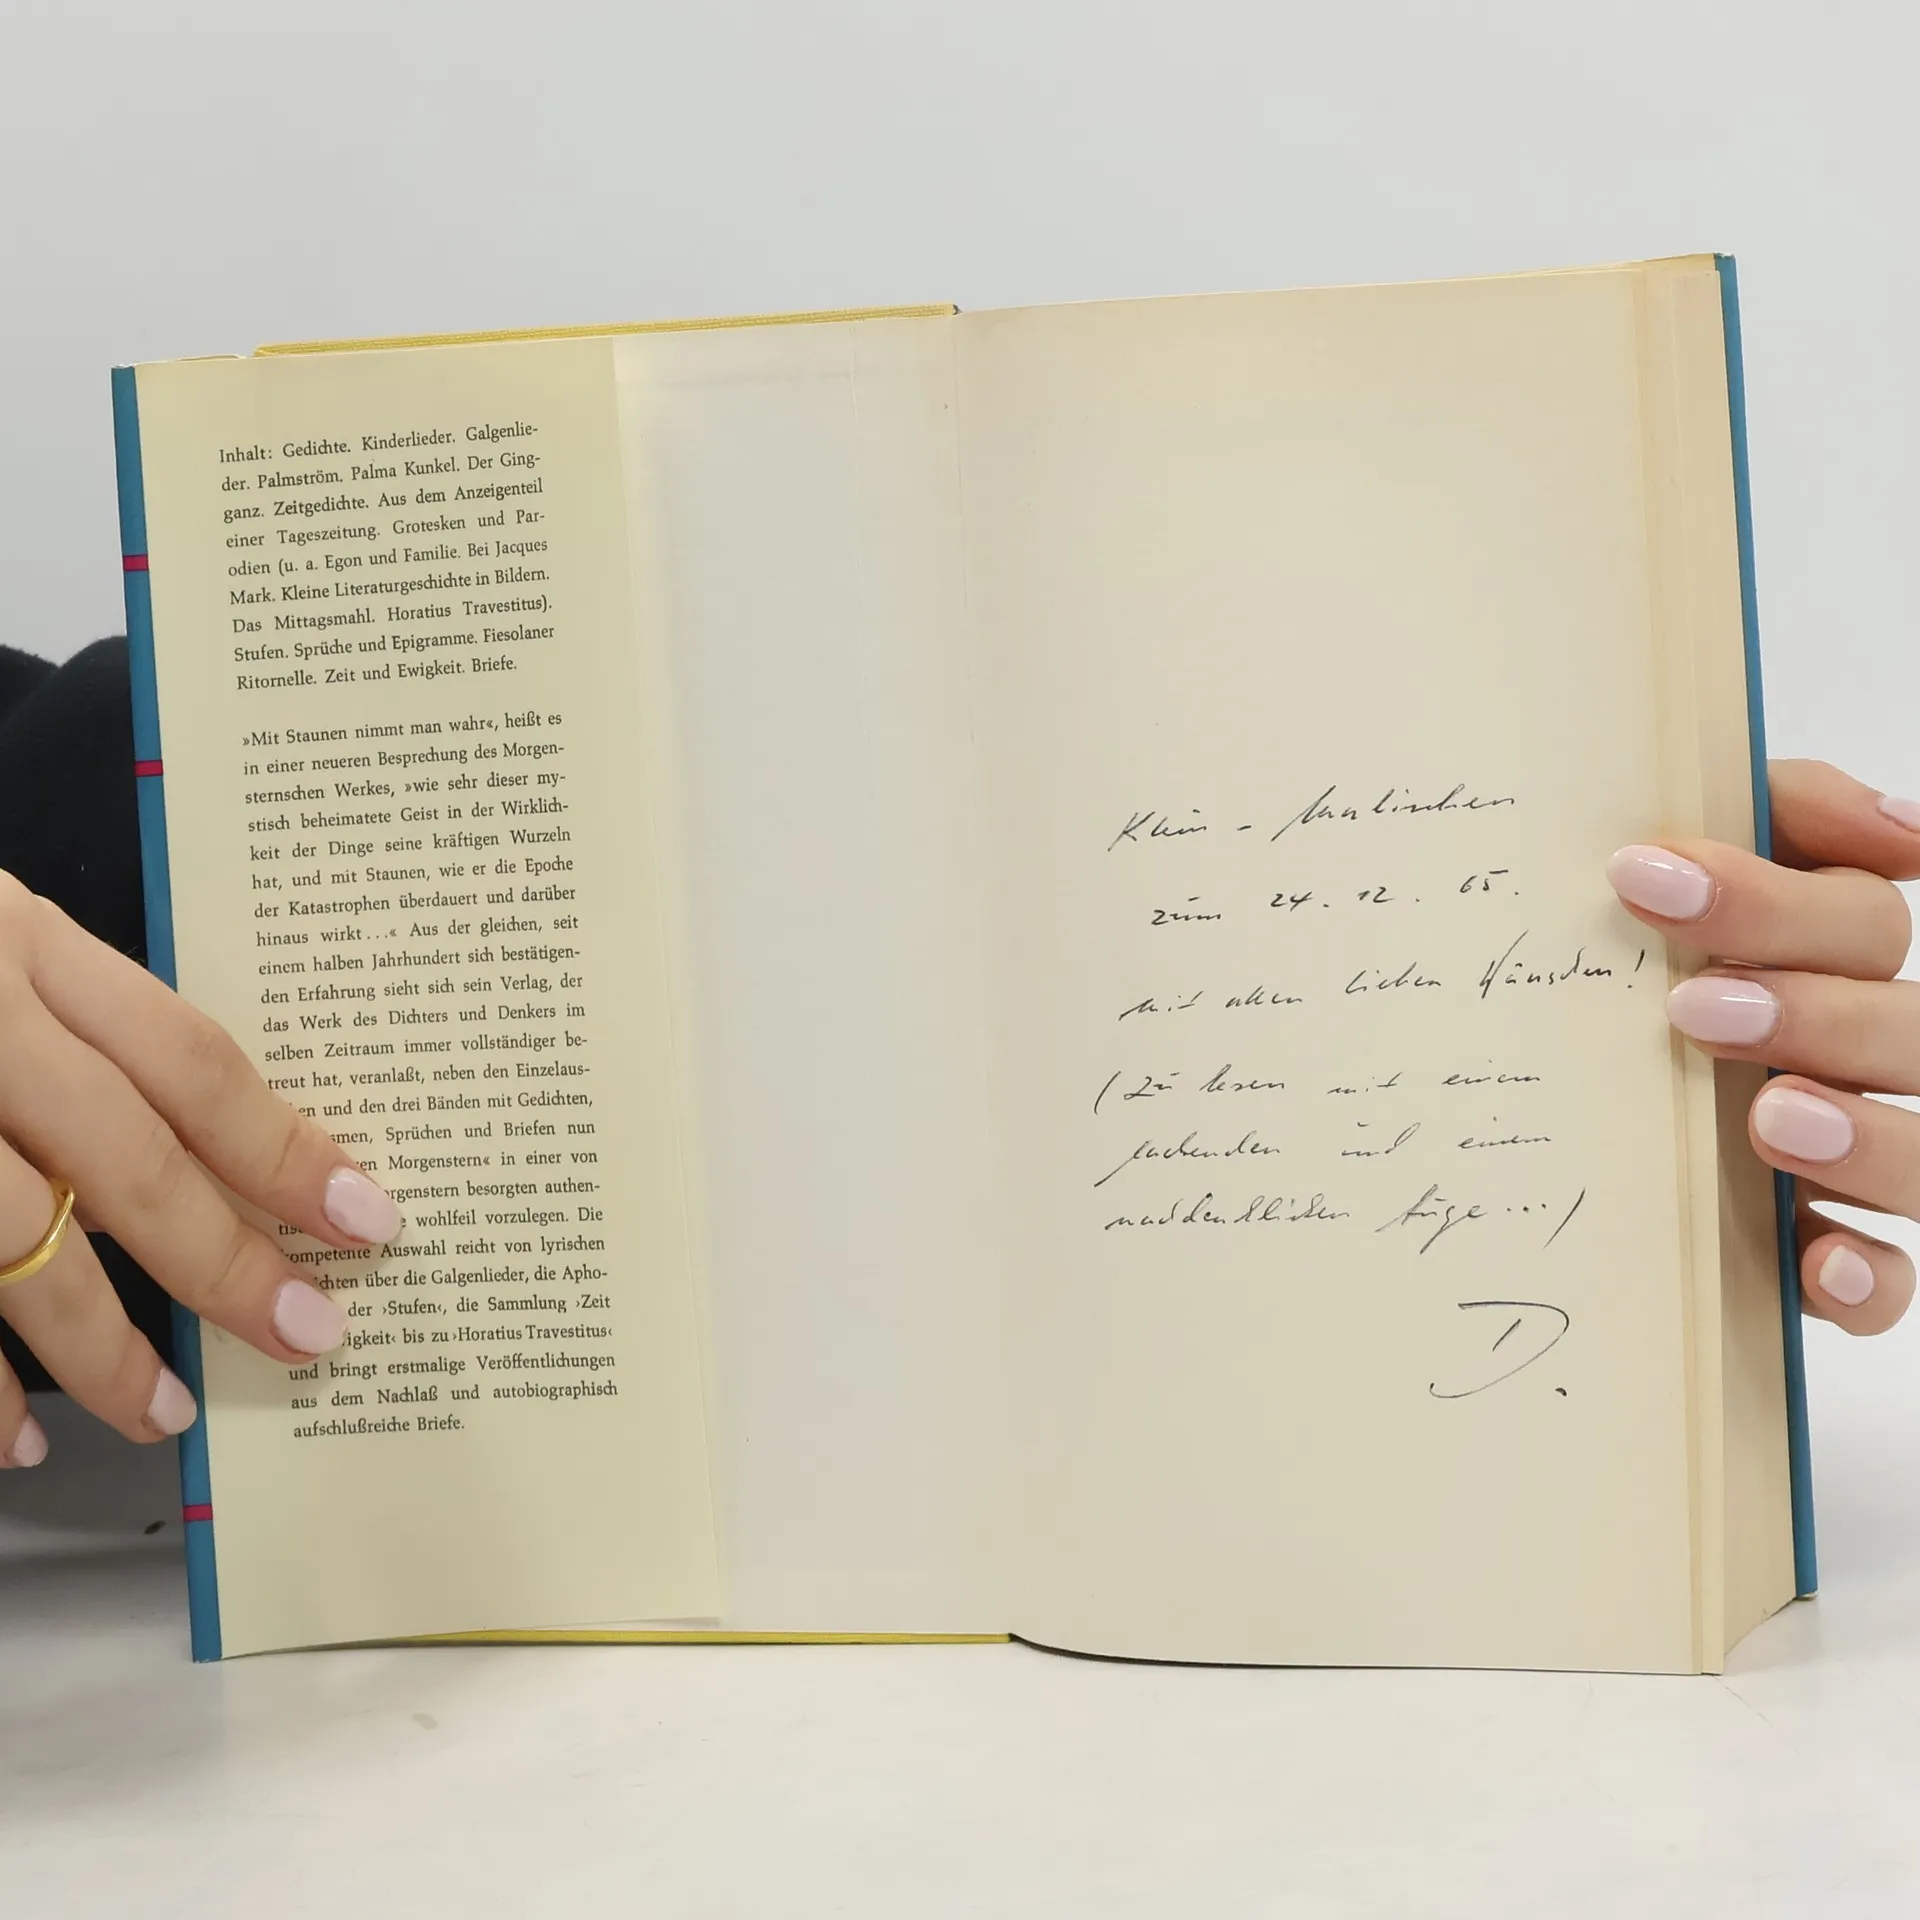 Inhalt: Gedichte. Kinderlieder. Galgenlie-
der. Palmström. Palma Kunkel. Der Ging-
ganz. Zeitgedichte. Aus dem Anzeigenteil
einer Tageszeitung. Grotesken und Par-
odien (u. a. Egon und Familie. Bei Jacques
Mark. Kleine Literaturgeschichte in Bildern.
Das Mittagsmahl. Horatius Travestitus).
Stufen. Sprüche und Epigramme. Fiesolaner
Ritornelle. Zeit und Ewigkeit. Briefe.
»Mit Staunen nimmt man wahr«, heißt es
in einer neueren Besprechung des Morgen-
sternschen Werkes, »wie sehr dieser my-
stisch beheimatete Geist in der Wirklich-
keit der Dinge seine kräftigen Wurzeln
hat, und mit Staunen, wie er die Epoche
der Katastrophen überdauert und darüber
hinaus wirkt...« Aus der gleichen, seit
einem halben Jahrhundert sich bestätigen-
den Erfahrung sieht sich sein Verlag, der
das Werk des Dichters und Denkers im
selben Zeitraum immer vollständiger be-
treut hat, veranlaßt, neben den Einzelaus-
en und den drei Bänden mit Gedichten,
men, Sprüchen und Briefen nun
en Morgenstern« in einer von
rgenstern besorgten authen-
wohlfeil vorzulegen. Die
kompetente Auswahl reicht von lyrischen
ichten über die Galgenlieder, die Apho-
der ›Stufen‹, die Sammlung ›Zeit
igkeit‹ bis zu ›Horatius Travestitus‹
und bringt erstmalige Veröffentlichungen
aus dem Nachlaß und autobiographisch
aufschlußreiche Briefe.
Klein -
zum 24. 12. 65.
mit allen lieben Wünschen!
(Zu lesen mit einem
lachenden und einem
nachdenklichen Auge...)
D.